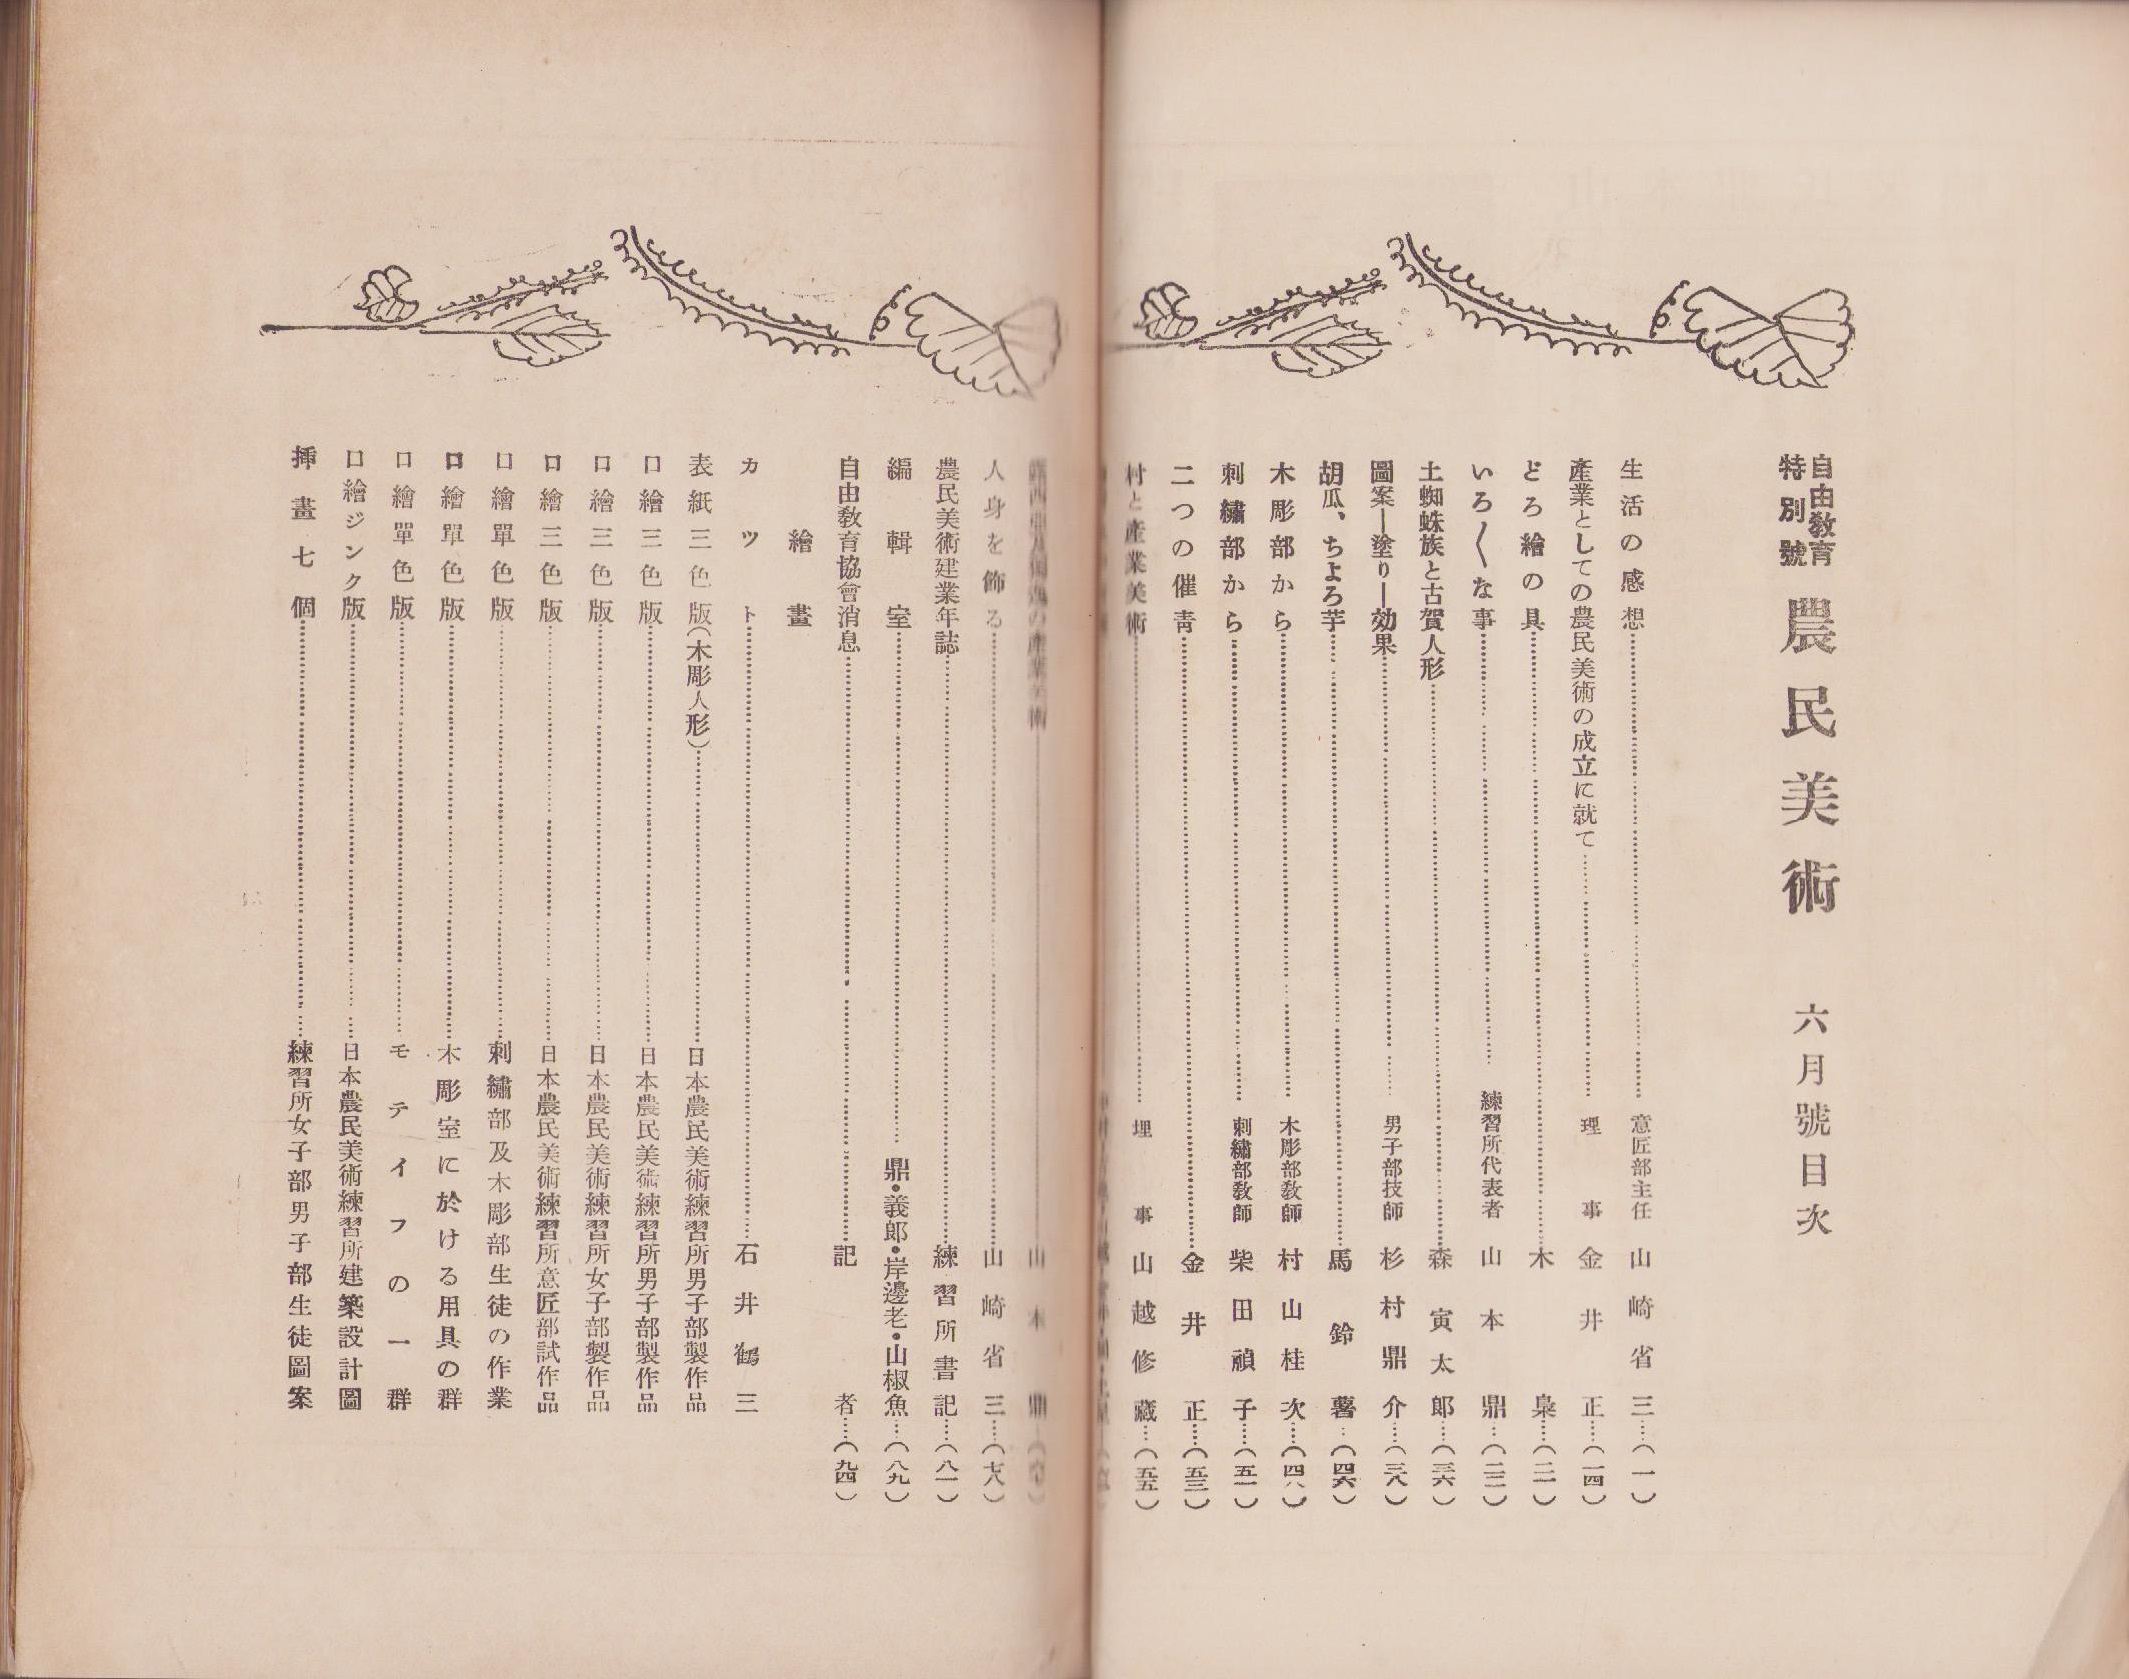 自由教育
特別號
農民美術　六月號目次
生活の感想……意匠部主任　山崎省三…（一）
產業としての農民美術の成立に就て……理事　金井正…（一四）
どろ繪の具……木梟…（二一）
いろ〳〵な事……練習所代表者　山本鼎…（二二）
土蜘蛛族と古賀人形……森寅太郎…（三六）
圖案―塗り―効果……男子部技師　杉村鼎介…（三八）
胡瓜、ちよろ芋……馬鈴薯…（四六）
木彫部から……木彫部敎師　村山桂次…（四八）
刺繡部から……刺繡部敎師　柴田禎子…（五一）
二つの催靑……金井正…（五三）
村と產業美術……理事　山越修藏…（五五）
山本鼎
人身を飾る……山崎省三…（七八）
農民美術建業年誌……練習所書記…（八一）
編輯室……鼎・義郎・岸邊老・山椒魚…（八九）
自由敎育協會消息……記者…（九四）
繪畫
カツト……石井鶴三
表紙三色版（木彫人形）……日本農民美術練習所男子部製作品
口繪三色版……日本農民美術練習所男子部製作品
口繪三色版……日本農民美術練習所女子部製作品
口繪三色版……日本農民美術練習所意匠部試作品
口繪單色版……刺繡部及木彫部生徒の作業
口繪單色版……木彫室に於ける用具の群
口繪單色版……モテイフの一群
口繪ジンク版……日本農民美術練習所建築設計圖
挿畫七個……練習所女子部男子部生徒圖案